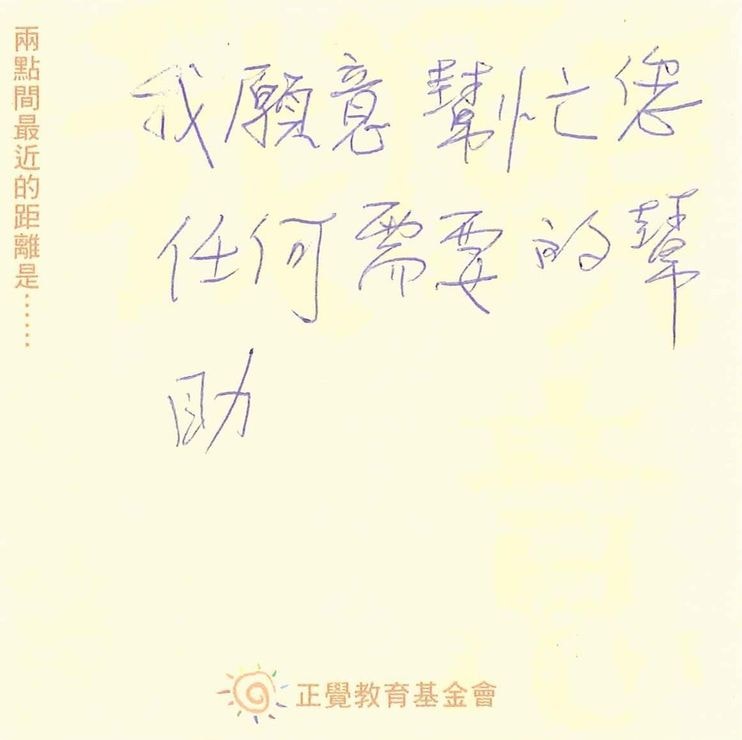 兩點間最近的距離是……
我願意幫忙您
任何需要的幫
助
正覺教育基金會